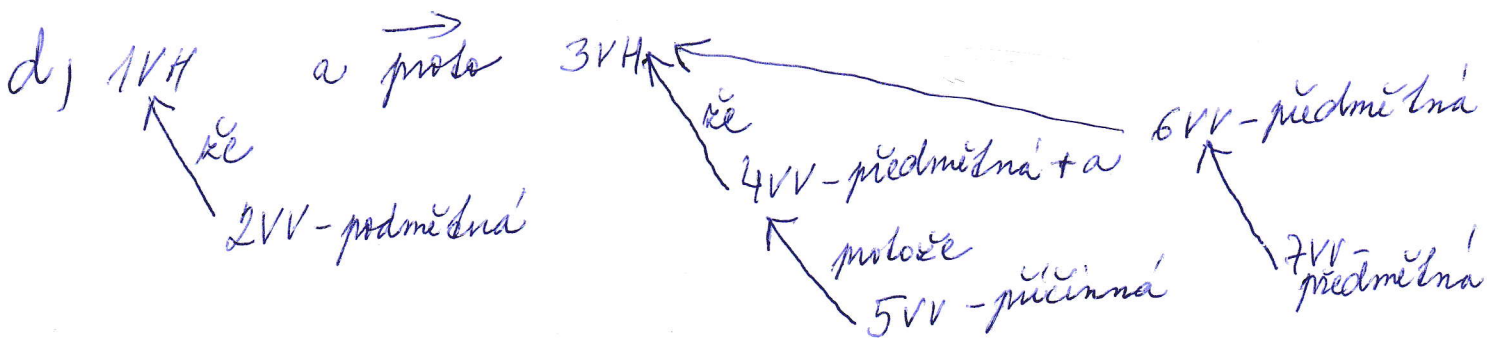 d) 1VH a proto 3VH
že
že
6VV - předmětná
4VV - předmětná + a
2VV - podmětná
protože
7VV - předmětná
5VV - příčinná